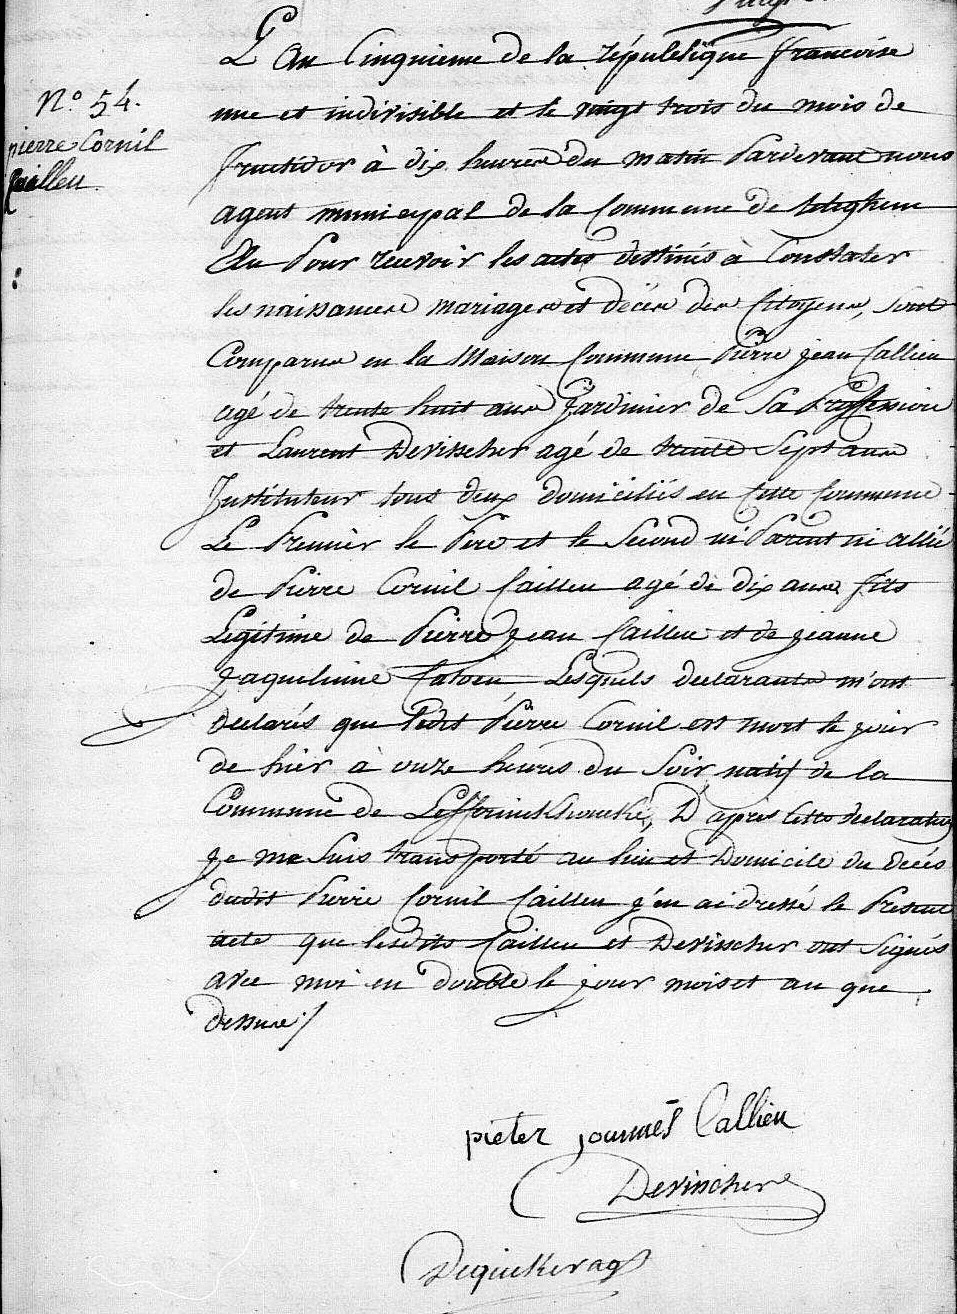 L'An Cinquieme de la république francoise
N.º 54.
une et indivisible et le vingt trois du mois de
pierre Cornil
Cailleu
fructidor à dix heures du matin Pardevant nous
agent municipal de la Commune de teteghem
Elu Pour recevoir les actes destinés à Constater
les naissances mariages et décès des Citoyens, sont
Comparus en la Maison Commune Pierre jean Callieu
agé de trente huit ans Jardinier de Sa Proffession
et Laurent Devisscher agé de trente Sept ans
Instituteur tous deux domiciliés en Cette Commune
Le Premier le Pere et le Second ni Parent ni allié
de Pierre Cornil Cailleu agé de dix ans fils
Legitime de Pierre jean Cailleu et de jeanne
Jaquelinne Catoen Lesquels declarants m'ont
declarés que ledit Pierre Cornil est mort le jour
de hier à onze heures du Soir natif de la
Commune de Leffrinckhoucke, D'après Cette declaration
je me Suis transporté au lieu et Domicile du decés
dudit Pierre Cornil Cailleu j'en ai dressé le Present
acte que lesdits Cailleu et Devisscher ont Signés
avec moi en double le jour mois et an que
dessus ./
pieter joannes Callieu
Devisscher
Dequekerag